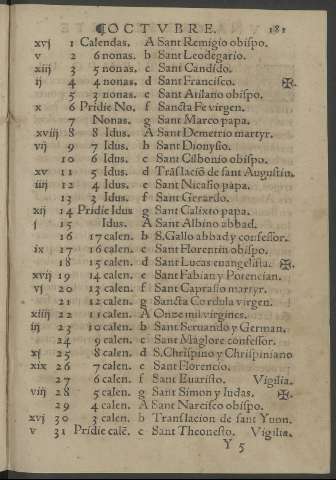 ¶OCTVBRE. 181
xvj 1 Calendas. A Sant Remigio obispo.
v 2 6 nonas. b Sant Leodegario.
xiij 3 5 nonas. c Sant Candido.
ij 4 4 nonas. d Sant Francisco. ✠
5 3 nonas. e Sant Atilano obispo.
x 6 Pridie No. f Sancta Fe virgen.
7 Nonas. g Sant Marco papa.
xviij 8 8 Idus. A Sant Demetrio martyr.
vij 9 7 Idus. b Sant Dionysio.
10 6 Idus. c Sant Cilbonio obispo.
xv 11 5 Idus. d Trãslacion de sant Augustin.
iiij 12 4 Idus. e Sant Nicasio papa.
13 3 Idus. f Sant Gerardo.
xij 14 Pridie Idus g Sant Calixto papa.
j 15 Idus. A Sant Albino abbad.
16 17 calen. b S. Gallo abbad y confessor.
ix 17 16 calen. c Sant Florentin obispo.
18 15 calen. d Sant Lucas euangelista. ✠
xvij 19 14 calen. e Sant Fabian y Potencian.
vj 20 13 calen. f Sant Caprasio martyr.
21 12 calen. g Sancta Cordula virgen.
xiiij 22 11 calen. A Onze mil virgines.
iij 23 10 calen. b Sant Seruando y German.
24 9 calen. c Sant Maglore confessor.
xj 25 8 calen. d S. Chrispino y Chrispiniano
xix 26 7 calen. e Sant Florencio.
27 6 calen. f Sant Euaristo. Vigilia.
viij 28 5 calen. g Sant Simon y Iudas. ✠
29 4 calen. A Sant Narcisco obispo.
xvj 30 3 calen. b Translacion de sant Yuon.
v 31 Pridie calẽ. c Sant Theonesto. Vigilia.
Y 5